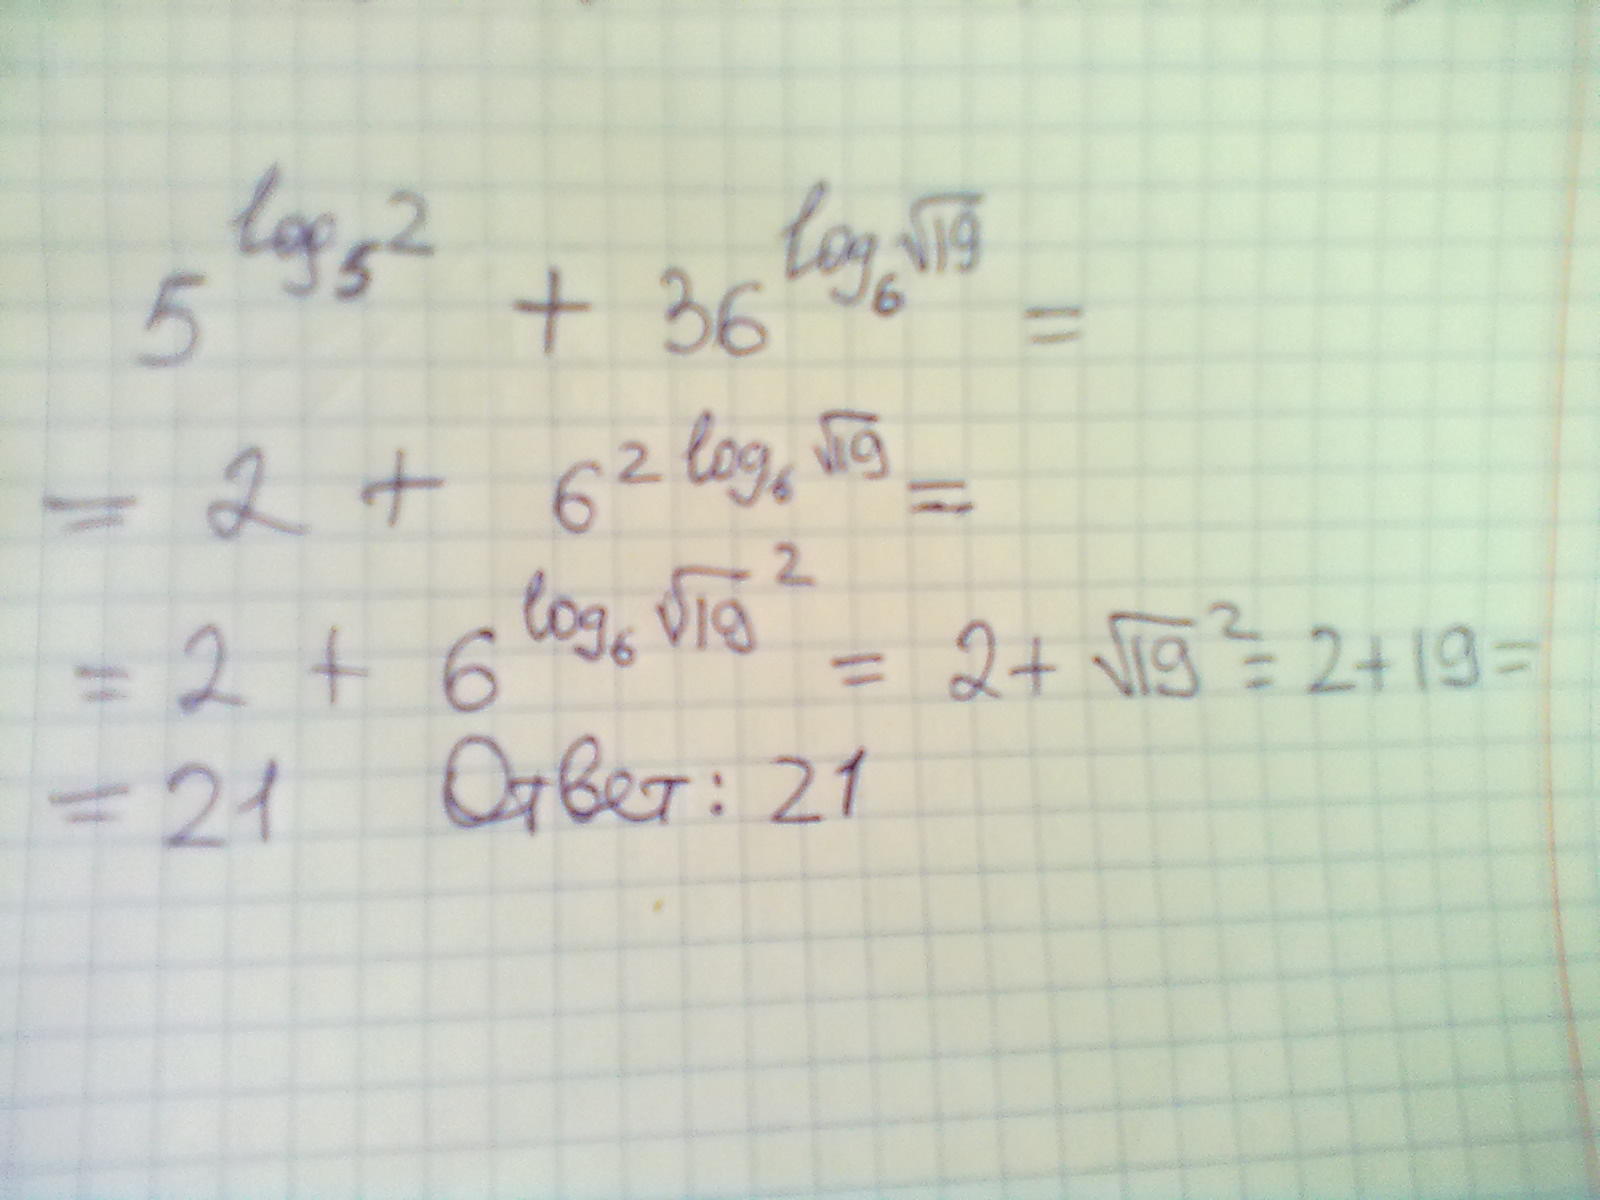 5^{log_5 2} + 36^{log_6 √19} =
= 2 + 6^{2 log_6 √19} =
= 2 + 6^{log_6 √19^2} = 2 + √19^2 = 2 + 19 =
= 21 Ответ: 21